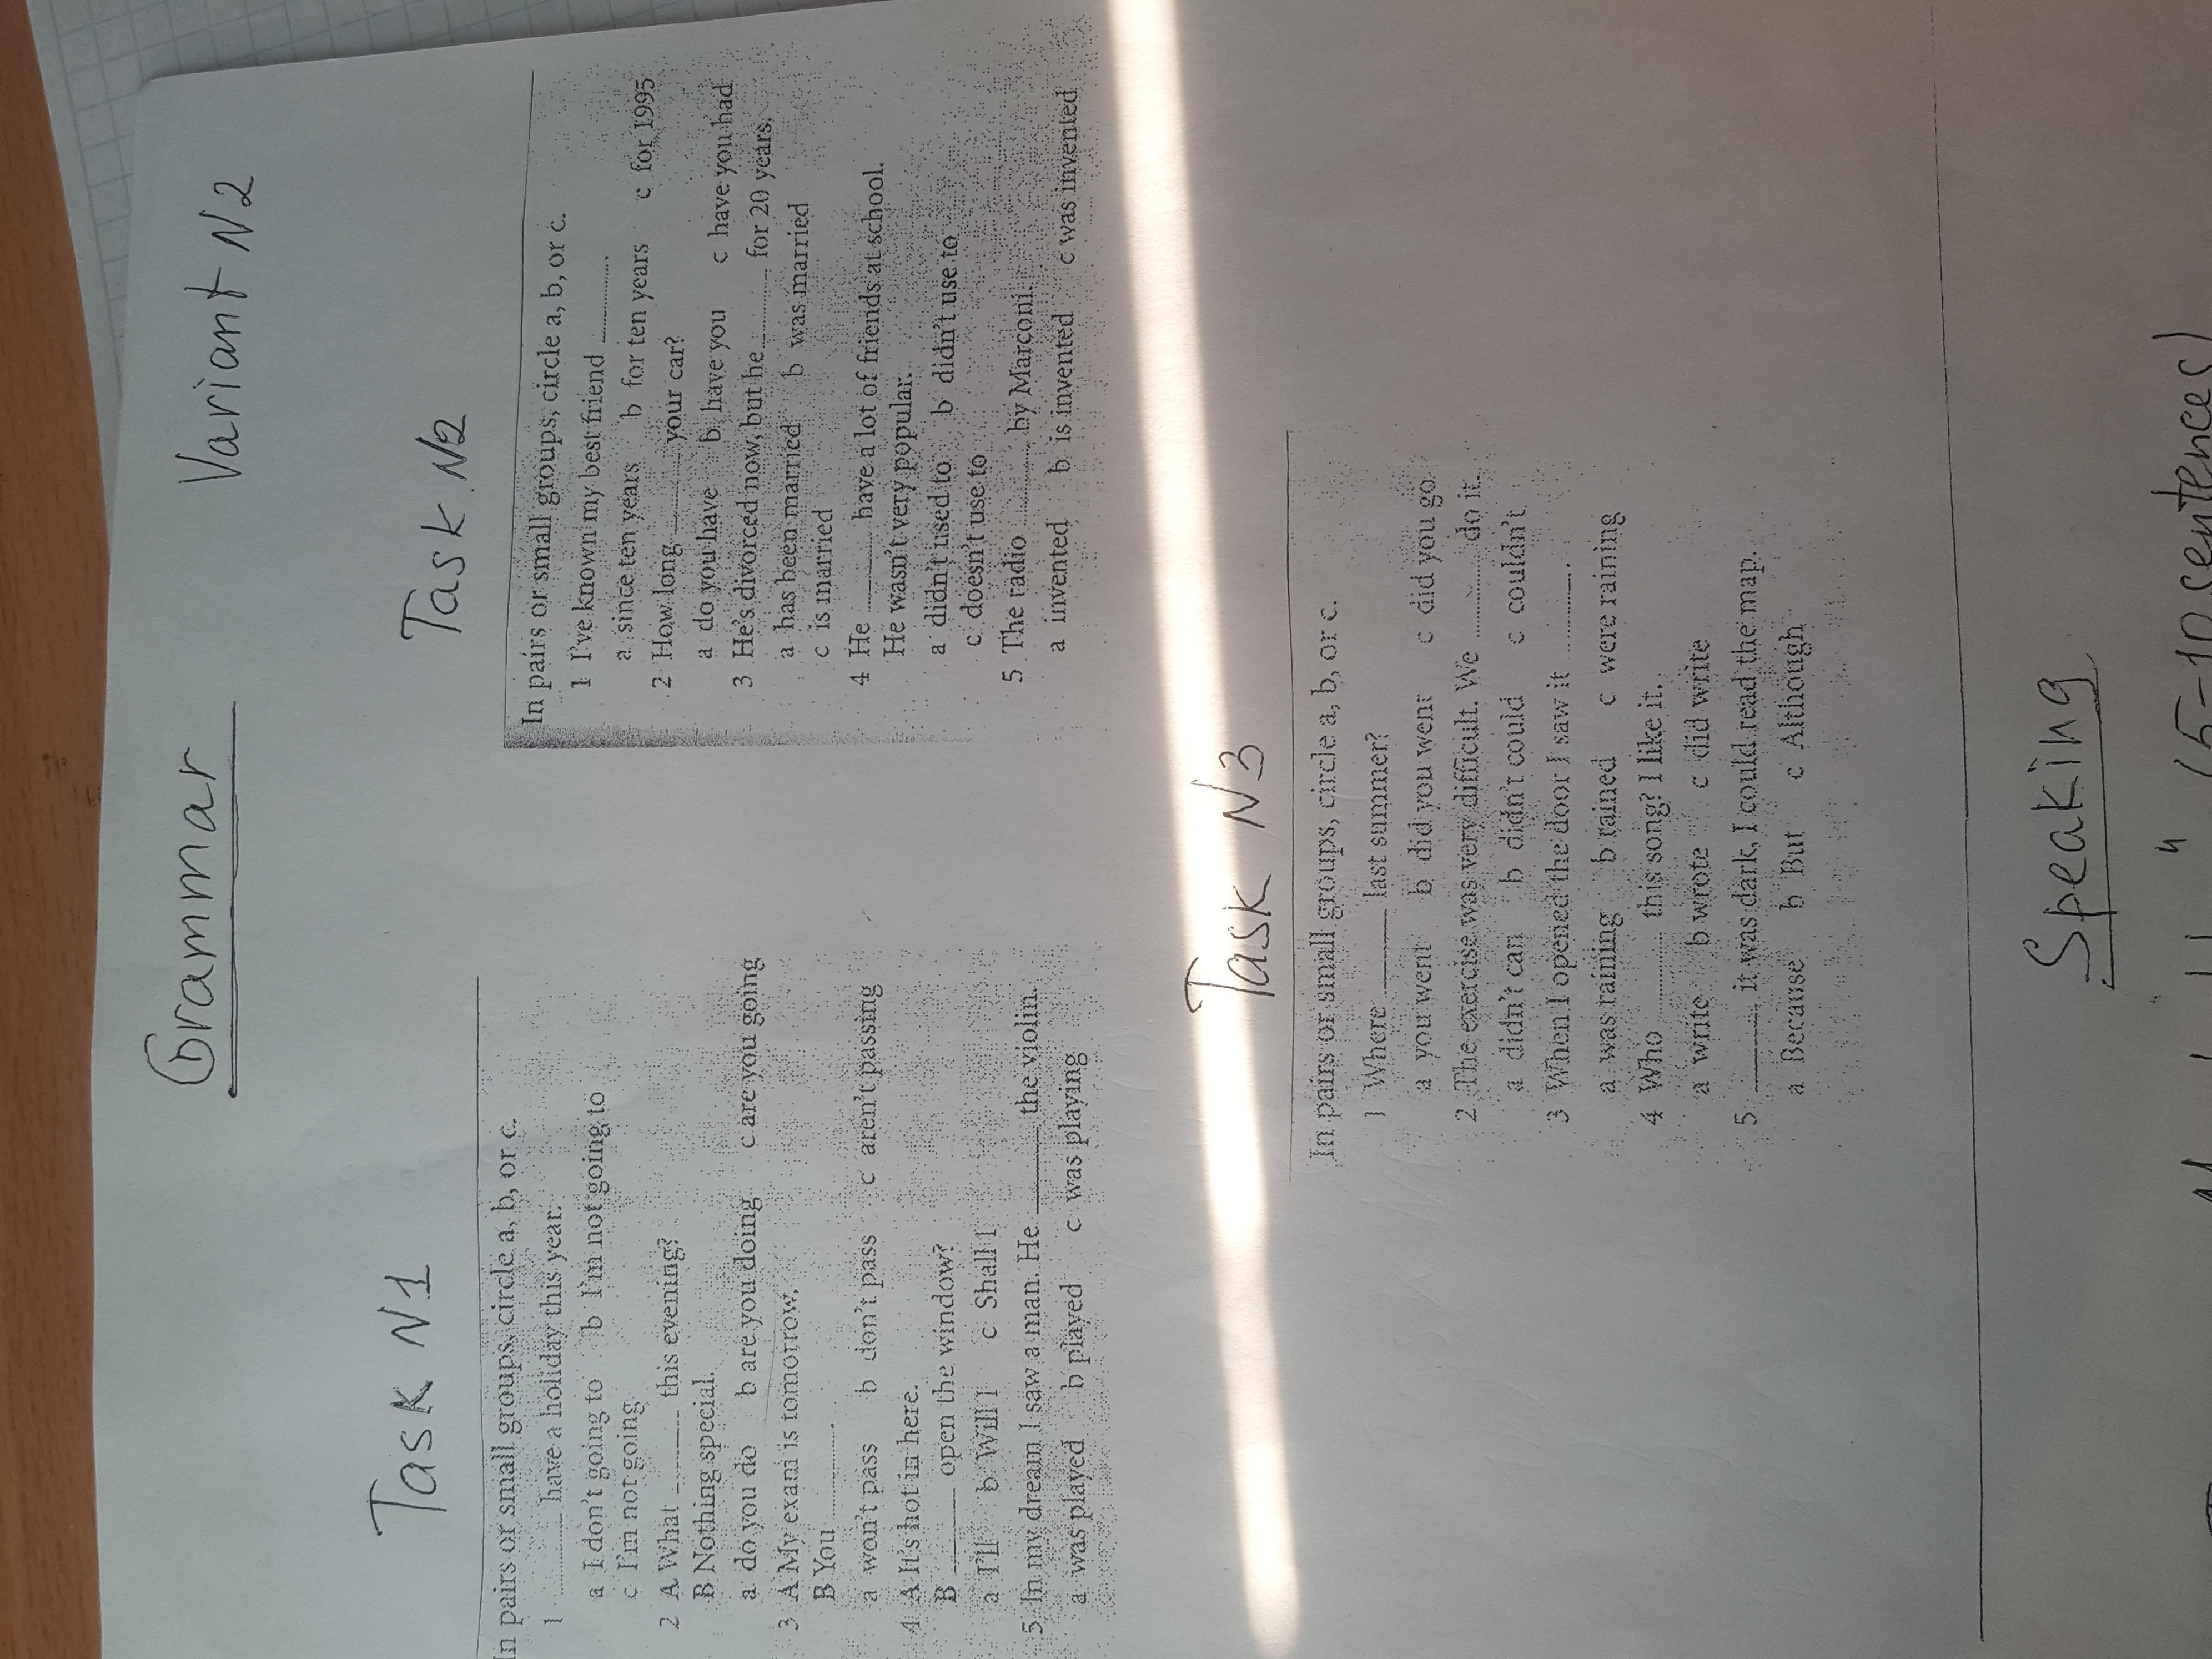 Grammar
Variant N2
Task N1
In pairs or small groups, circle a, b, or c.
1 ______ have a holiday this year.
a I don't going to b I'm not going to
c I'm not going
2 A What ______ this evening?
B Nothing special.
a do you do b are you doing c are you going
3 A My exam is tomorrow.
B You ______.
a won't pass b don't pass c aren't passing
4 A It's hot in here.
B ______ open the window?
a I'll b Will I c Shall I
5 In my dream I saw a man. He ______ the violin.
a was played b played c was playing
Task N2
In pairs or small groups, circle a, b, or c.
1 I've known my best friend ______.
a since ten years b for ten years c for 1995
2 How long ______ your car?
a do you have b have you c have you had
3 He's divorced now, but he ______ for 20 years.
a has been married b was married
c is married
4 He ______ have a lot of friends at school.
He wasn't very popular.
a didn't used to b didn't use to
c doesn't use to
5 The radio ______ by Marconi.
a invented b is invented c was invented
Task N3
In pairs or small groups, circle a, b, or c.
1 Where ______ last summer?
a you went b did you went c did you go
2 The exercise was very difficult. We ______ do it.
a didn't can b didn't could c couldn't
3 When I opened the door I saw it ______.
a was raining b rained c were raining
4 Who ______ this song? I like it.
a write b wrote c did write
5 ______ it was dark, I could read the map.
a Because b But c Although
Speaking
(5-10 sentences)